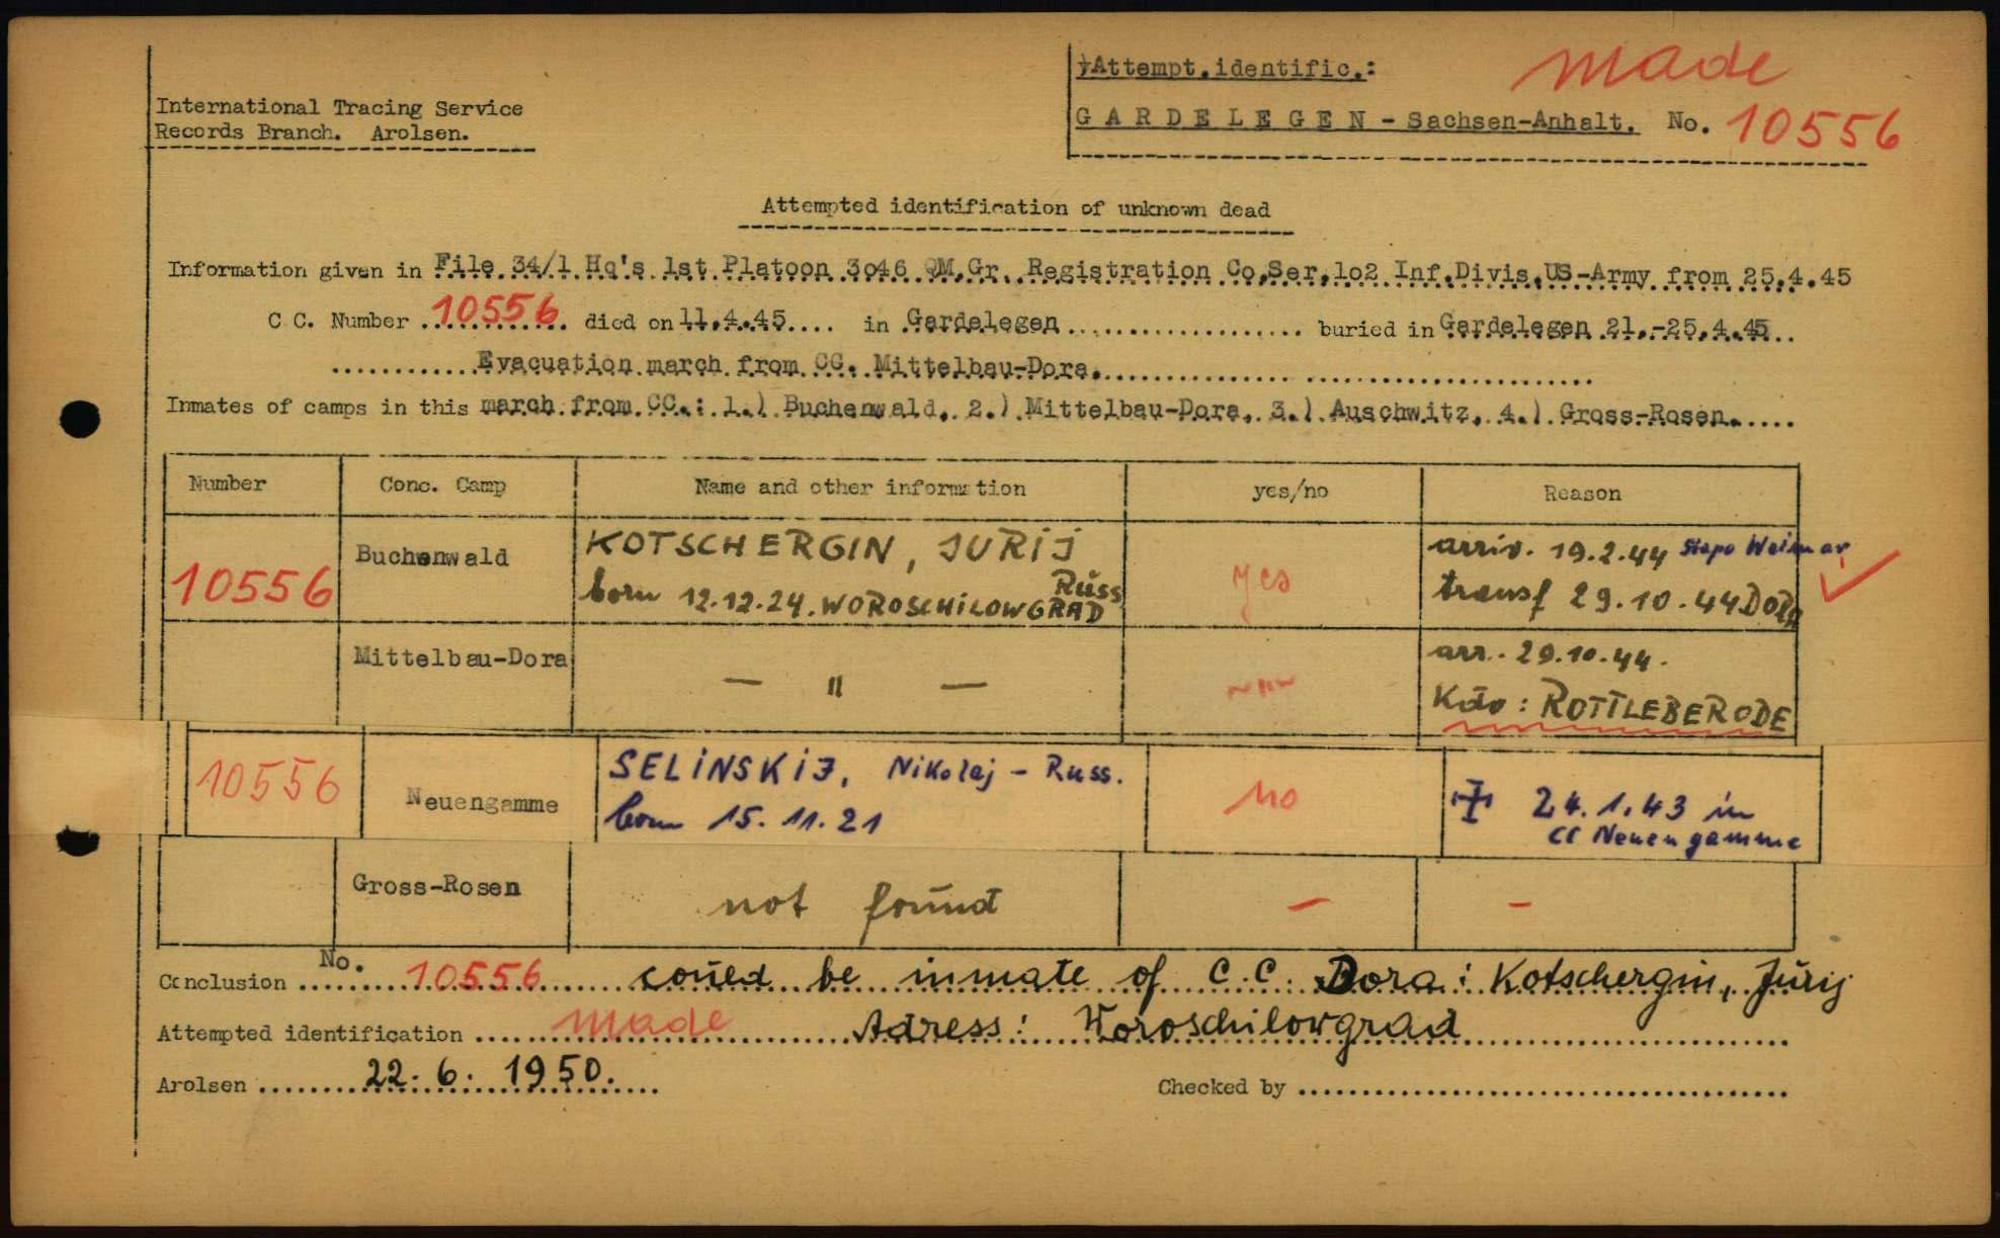 Attempt.identific.: made
International Tracing Service
Records Branch. Arolsen.
GARDELEGEN - Sachsen-Anhalt. No. 10556
Attempted identification of unknown dead
Information given in File 34/1 Hq's 1st Platoon 3o46 QM.Gr. Registration Co,Ser,1o2 Inf.Divis.US-Army from 25.4.45
C C. Number 10556 died on 11.4.45 in Gardelegen buried in Gardelegen 21.-25.4.45
Evacuation march from CC. Mittelbau-Dora.
Inmates of camps in this march from CC.: 1.) Buchenwald, 2.) Mittelbau-Dora, 3.) Auschwitz, 4.) Gross-Rosen.
Number Conc. Camp Name and other information yes/no Reason
10556 Buchenwald KOTSCHERGIN, JURIJ yes arriv. 19.2.44 Stapo Weimar
Russ
born 12.12.24. WOROSCHILOWGRAD transf 29.10.44 DORA
Mittelbau-Dora — " — arr. 29.10.44.
Kdo: ROTTLEBERODE
10556 Neuengamme SELINSKIJ, Nikolaj - Russ. no 24.1.43 in
born 15.11.21 CC Neuengamme
Gross-Rosen not found — —
Conclusion No. 10556 could be inmate of C.C. Dora: Kotschergin, Jurij
Attempted identification made Adress: Woroschilowgrad
Arolsen 22.6.1950. Checked by